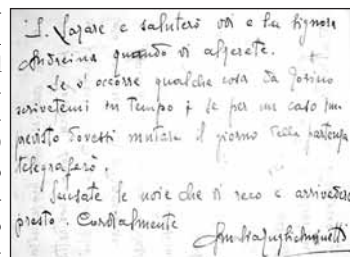 S. Lazare e saluterò voi e la Signora
Andreina quando vi alzerete.
Se v'occorre qualche cosa da Torino
scrivetemi in tempo e se per un caso im
previsto dovessi mutare il giorno della partenza
telegraferò.
Scusate le noie che vi reco e arrivederci
presto. Cordialmente
Amalia Guglielminetti